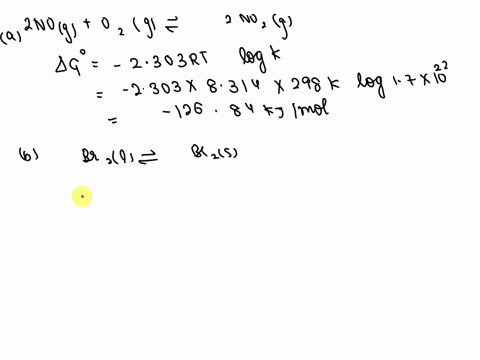 (a) 2NO(g) + O2(g) ⇌ 2NO2(g)
ΔG° = -2.303RT log k
= -2.303 × 8.314 × 298 k log 1.7 × 10^22
= -126.84 kJ/mol
(b) Br2(l) ⇌ Br2(s)